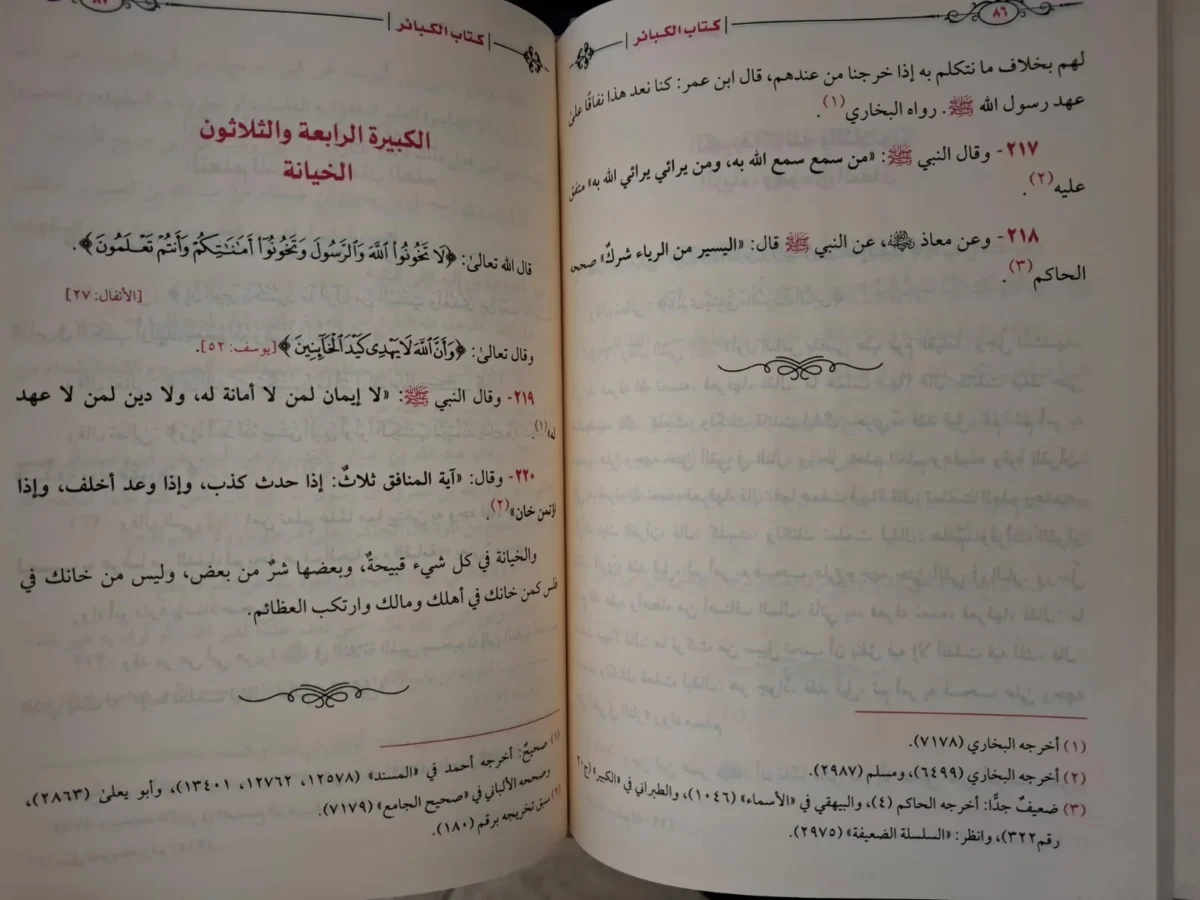 ٨٦
كتاب الكبائر
لهم بخلاف ما نتكلم به إذا خرجنا من عندهم، قال ابن عمر: كنا نعد هذا نفاقًا على
عهد رسول الله ﷺ. رواه البخاري(١).
٢١٧- وقال النبي ﷺ: «من سمع سمع الله به، ومن يرائي يرائي الله به» متفق
عليه(٢).
٢١٨- وعن معاذ رضي الله عنه، عن النبي ﷺ قال: «اليسير من الرياء شركٌ» صححه
الحاكم(٣).
(١) أخرجه البخاري (٧١٧٨).
(٢) أخرجه البخاري (٦٤٩٩)، ومسلم (٢٩٨٧).
(٣) ضعيفٌ جدًّا: أخرجه الحاكم (٤)، والبيهقي في «الأسماء» (١٠٤٦)، والطبراني في «الكبير» (ج٢٠
رقم٣٢٢)، وانظر: «السلسلة الضعيفة» (٢٩٧٥).
٨٧
كتاب الكبائر
الكبيرة الرابعة والثلاثون
الخيانة
قال الله تعالى: ﴿لَا تَخُونُواْ ٱللَّهَ وَٱلرَّسُولَ وَتَخُونُوٓاْ أَمَٰنَٰتِكُمْ وَأَنتُمْ تَعْلَمُونَ﴾.
[الأنفال: ٢٧]
وقال تعالى: ﴿وَأَنَّ ٱللَّهَ لَا يَهْدِى كَيْدَ ٱلْخَآئِنِينَ﴾ [يوسف: ٥٢].
٢١٩- وقال النبي ﷺ: «لا إيمان لمن لا أمانة له، ولا دين لمن لا عهد
له»(١).
٢٢٠- وقال: «آية المنافق ثلاثٌ: إذا حدث كذب، وإذا وعد أخلف، وإذا
اؤتمن خان»(٢).
والخيانة في كل شيء قبيحةٌ، وبعضها شرٌ من بعض، وليس من خانك في
فلس كمن خانك في أهلك ومالك وارتكب العظائم.
(١) صحيحٌ: أخرجه أحمد في «المسند» (١٢٥٧٨، ١٢٧٦٢، ١٣٤٠١)، وأبو يعلىٰ (٢٨٦٣)،
وصححه الألباني في «صحيح الجامع» (٧١٧٩).
(٢) سبق تخريجه برقم (١٨٠).